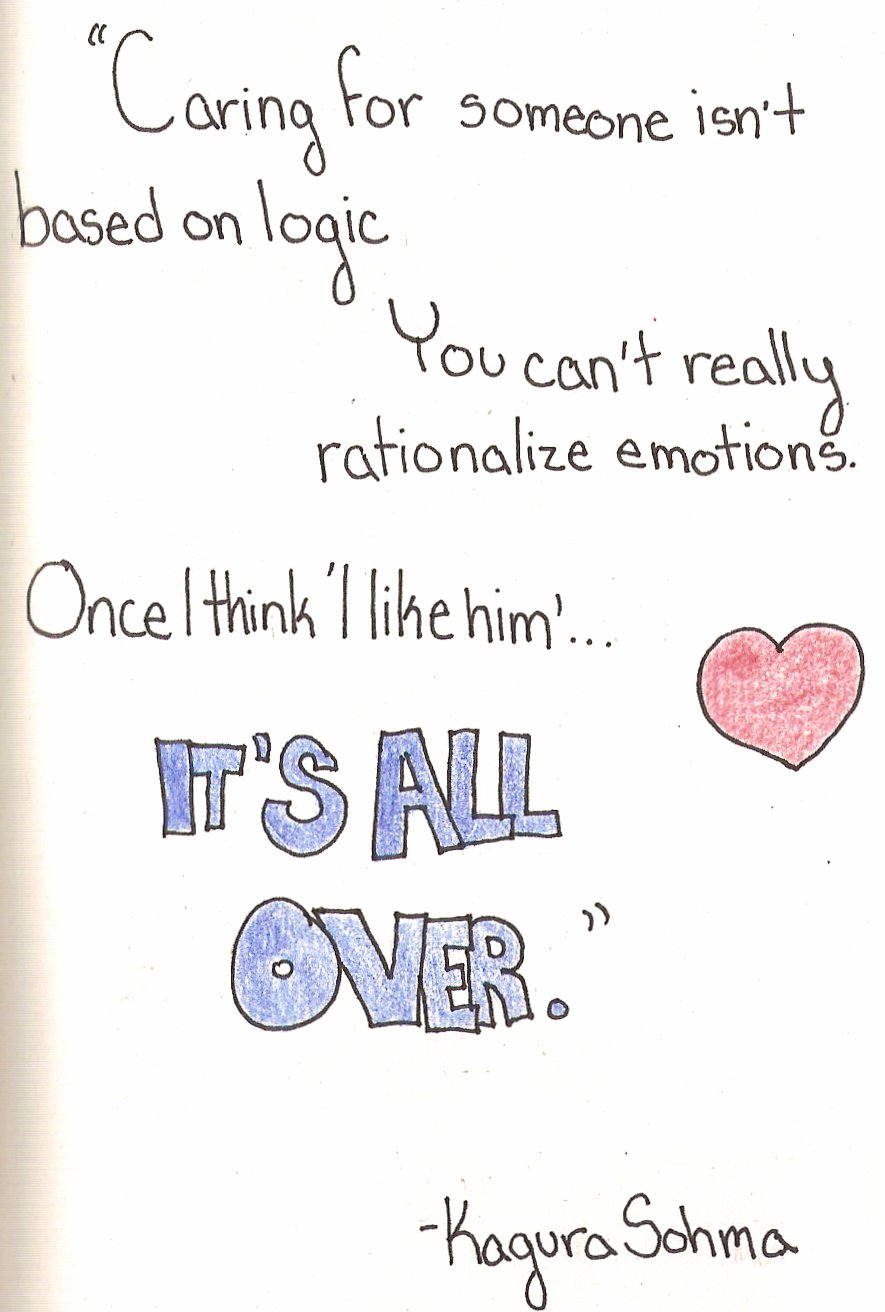 “Caring for someone isn't
based on logic
You can't really
rationalize emotions.
Once I think 'I like him'...
IT'S ALL
OVER.”
-Kagura Sohma